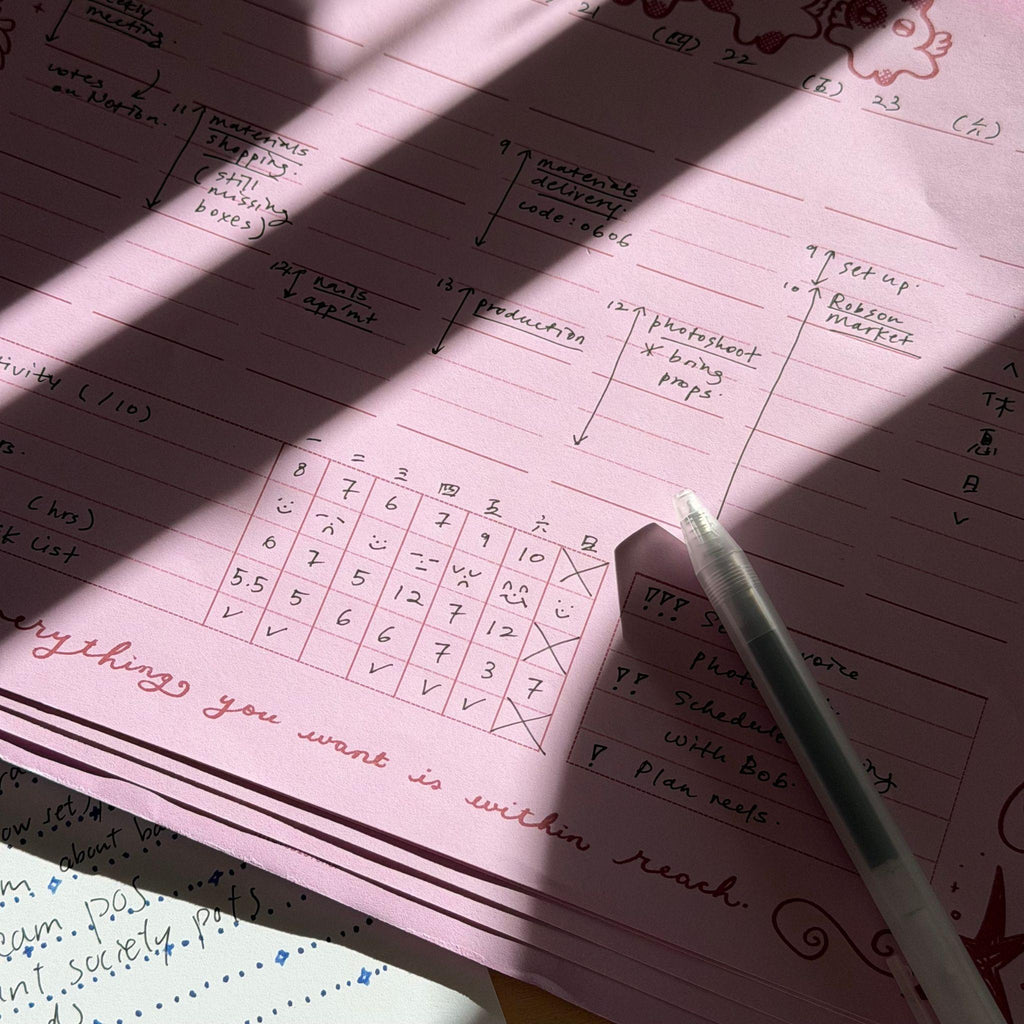 21
(四)
22
(五)
23
(六)
meeting.
on Notion.
11
materials
shopping.
(still
missing
boxes)
9
materials
delivery.
code: 0606
9
set up.
10
Robson
Market
nails
app/mt
13
production
12
photoshoot
* bring
props.
休
息
日
(/10)
(hrs)
List
一 二 三 四 五 六 日
8 7 6 7 9 10
6 7 5 12 7 12
5.5 5 6 6 7 3 7
everything you want is within reach.
!!!
!! Schedule
with Bob.
! Plan reels.
about
pos
society pots